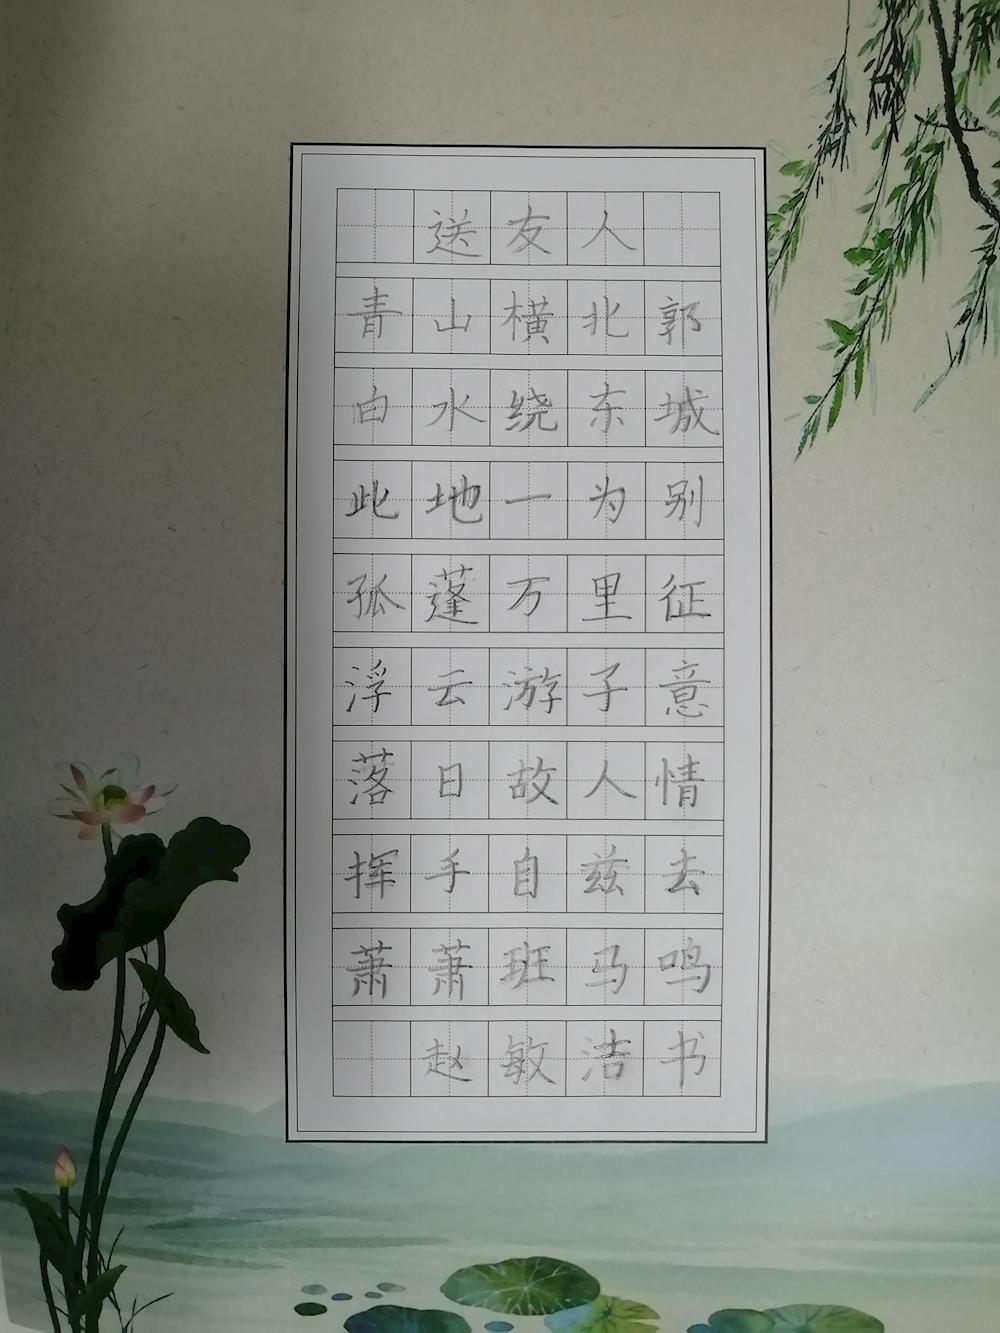 送友人
青山横北郭
白水绕东城
此地一为别
孤蓬万里征
浮云游子意
落日故人情
挥手自兹去
萧萧班马鸣
赵敏洁书